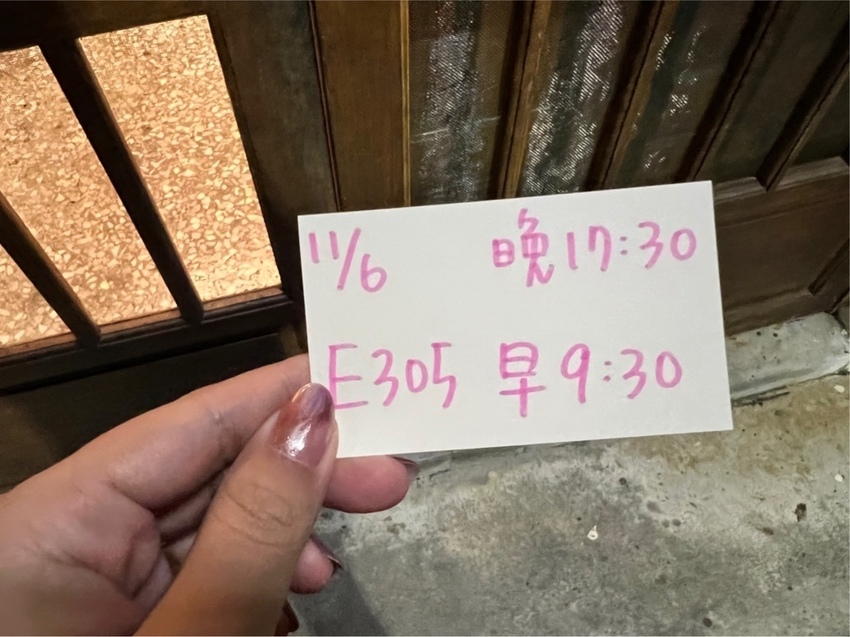 11/6 晚17:30
E305 早9:30